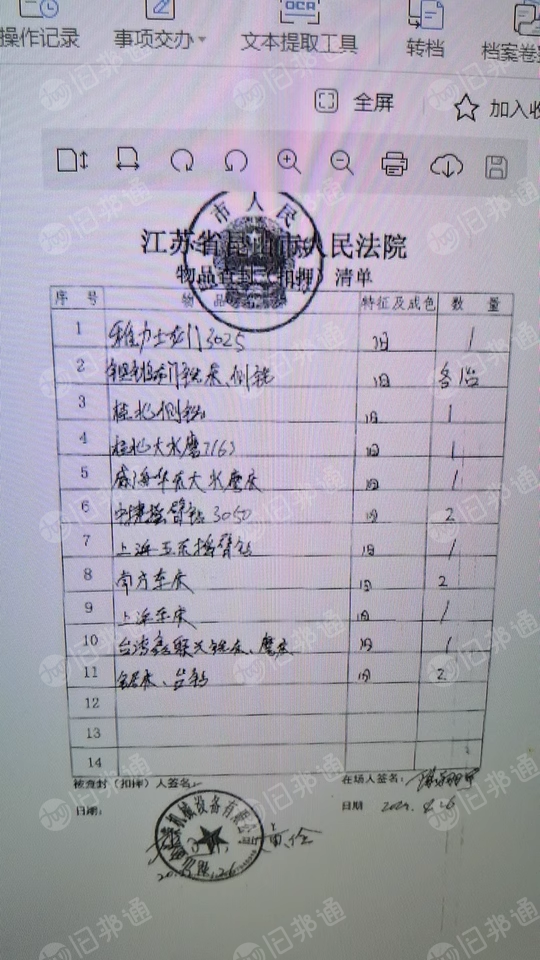 操作记录 事项交办 文本提取工具 转档
OCR
全屏 加入收
市人民
江苏省昆山市人民法院
物品查封（扣押）清单
序号 物品 特征及成色 数量
1 龙门3025 旧 1
2 龙门铣床、侧铣 旧 各1台
3 桂北侧铣 旧 1
4 桂北大水磨7163 旧 1
5 威海华东大水磨床 旧 1
6 中捷摇臂钻3050 旧 2
7 上海五东摇臂钻 旧 1
8 南方车床 旧 2
9 上海车床 旧 1
10 台湾鑫联义铣床、磨床 旧 1
11 锯床、台钻 旧 2
12
13
14
被查封（扣押）人签名： 在场人签名：
日期： 日期
机械设备有限公司
旧邦通